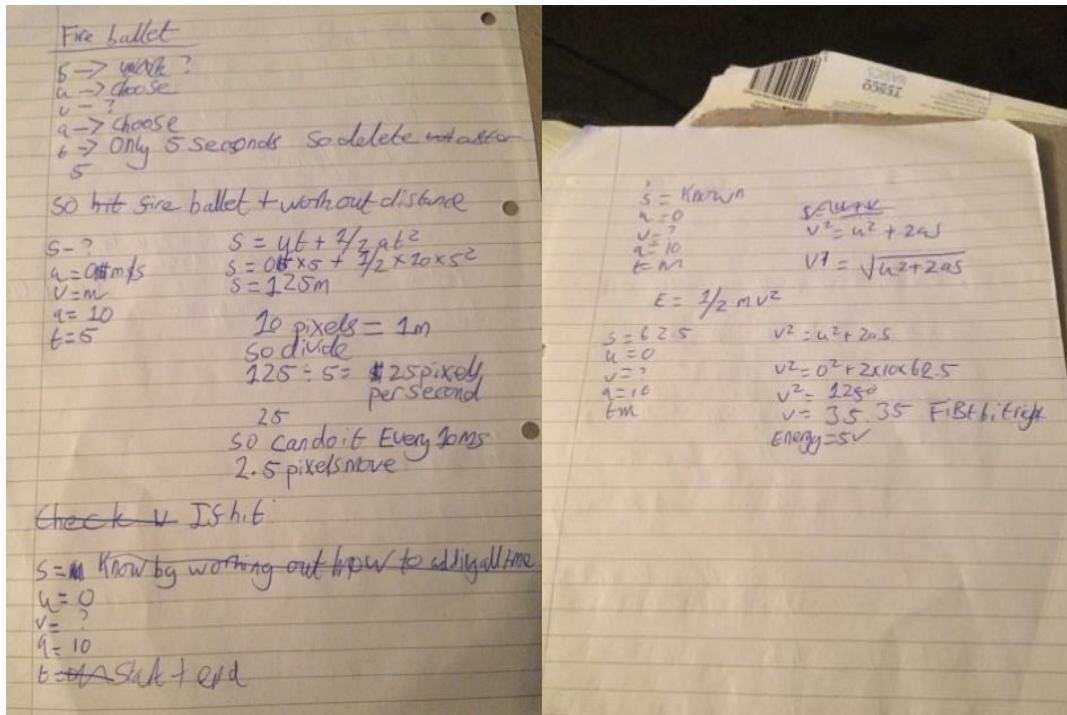 Fire ballet
s -> ?
u -> choose
v - ?
a -> choose
t -> Only 5 seconds so delete after
5
so hit fire ballet + work out distance
s - ?
u = 0 m/s
v = m
a = 10
t = 5
s = ut + 1/2 at²
s = 0 × 5 + 1/2 × 10 × 5²
s = 125m
10 pixels = 1m
so divide
125 ÷ 5 = 25 pixels
per second
25
so can do it Every 10ms
2.5 pixels move
Check v Is hit
s = Know by working out how to add all time
u = 0
v = ?
a = 10
t = Start + end
TESCO
BASICS
s = Known
u = 0
v = ?
a = 10
t = m
v² = u² + 2as
v = √u² + 2as
E = 1/2 mv²
s = 62.5
u = 0
v = ?
a = 10
t m
v² = u² + 2as
v² = 0² + 2×10×62.5
v² = 1250
v = 35.35 First bit right
Energy = 5v